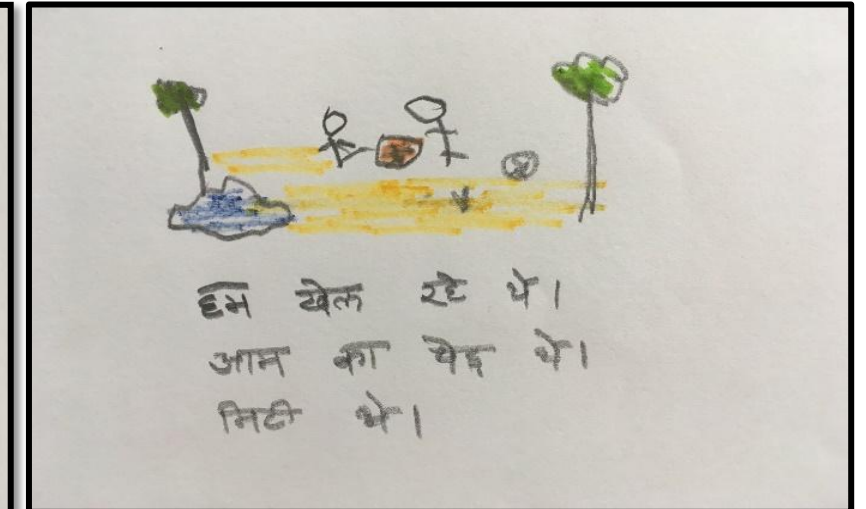 हम खेल रहे थे।
आम का पेड़ थे।
मिटी थे।